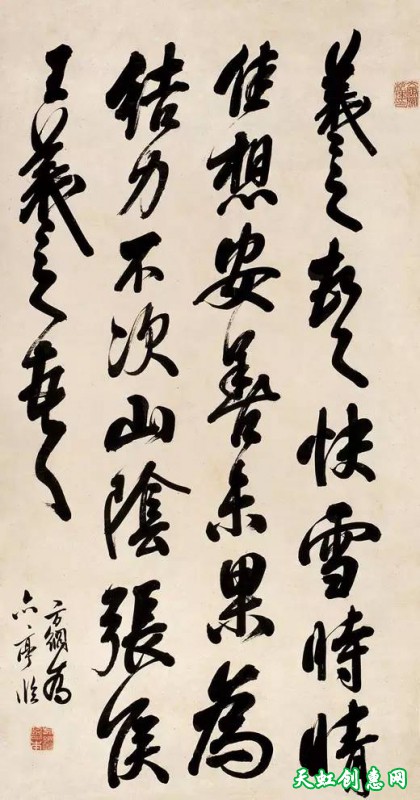 羲之頓首快雪時晴
佳想安善未果為
結力不次山陰張侯
王羲之頓首
方綱為
亭臨
天虹创惠网